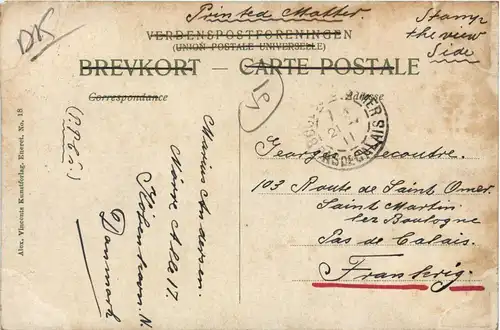 DK
Printed Matter.
Stamp
the view
Side
VERDENSPOSTFORENINGEN
(UNION POSTALE UNIVERSELLE)
BREVKORT — CARTE POSTALE
Correspondance
Adresse
Marius Andersen.
Norre Allé 17.
København. N.
Danmark
Georges Lecoutre.
103 Route de Saint Omer
Saint Martin
lez Boulogne
Pas de Calais.
Frankrig.
PAS DE CALAIS
Alex. Vincents Kunstforlag. Eneret. No. 18